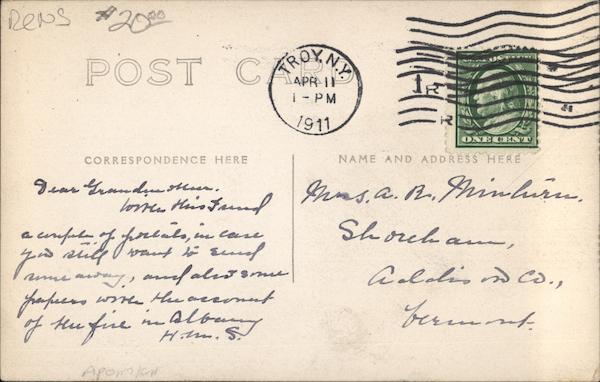 RENS $20.00
POST CARD
TROY, N.Y.
APR 11
1-PM
1911
1
R
R
ONE CENT
CORRESPONDENCE HERE
NAME AND ADDRESS HERE
Dear Grandmother.
With this I send
a couple of postals, in case
you still want to send
some away, and also some
papers with the account
of the fire in Albany
H. M. S.
Mrs. A. R.
Shoreham,
Addison Co.,
Vermont.